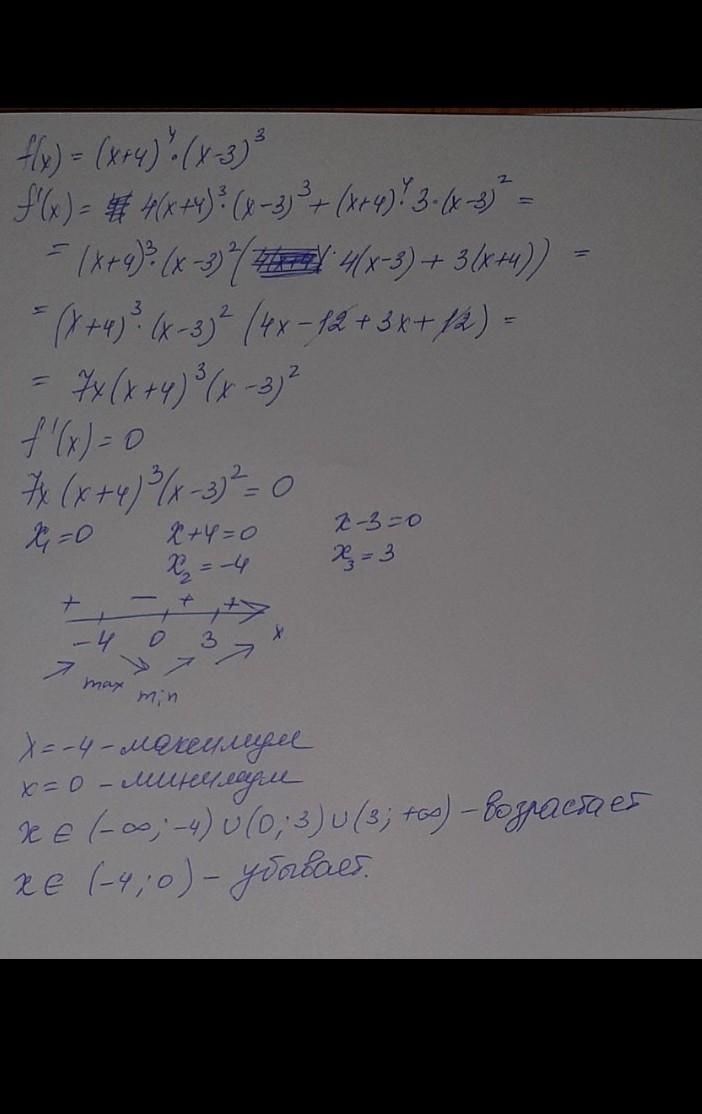 f(x) = (x+4)⁴·(x-3)³
f'(x) = 4(x+4)³·(x-3)³+(x+4)⁴·3·(x-3)² =
= (x+4)³·(x-3)²( 4(x-3) + 3(x+4)) =
= (x+4)³·(x-3)² (4x-12+3x+12) =
= 7x(x+4)³(x-3)²
f'(x) = 0
7x(x+4)³(x-3)² = 0
x₁=0 x+4=0 x-3=0
x₂=-4 x₃=3
+ — + +
-4 0 3 x
max
min
x=-4 - максимум
x=0 - минимум
x ∈ (-∞;-4) ∪(0;3)∪(3;+∞) - возрастает
x ∈ (-4;0) - убывает.